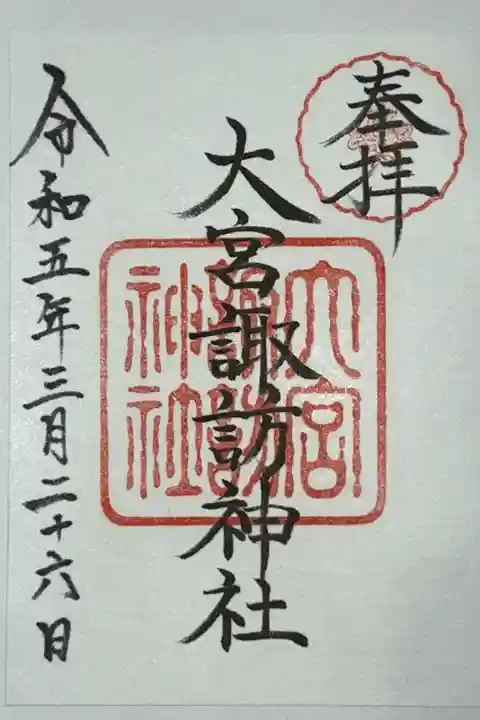 奉拝
大宮諏訪神社
大宮諏訪神社
令和五年三月二十六日